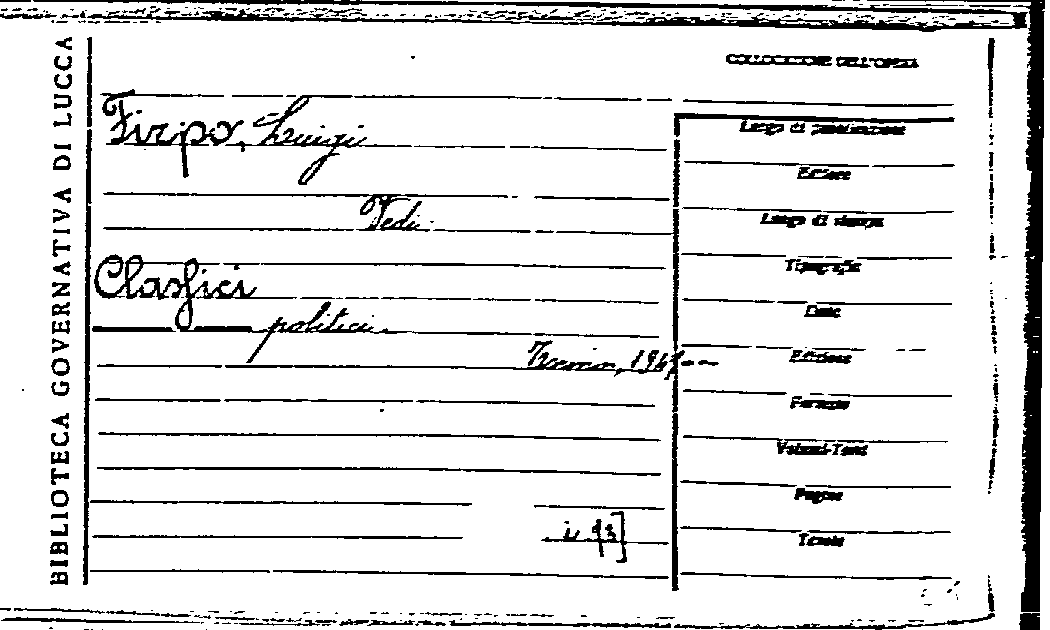 BIBLIOTECA GOVERNATIVA DI LUCCA
COLLOCAZIONE DELL'OPERA
Firpo, Luigi
Vedi
Classici
politici.
Torino, 194
Luogo di pubblicazione
Editore
Luogo di stampa
Tipografia
Data
Edizione
Formato
Volumi-Tomi
Pagine
Tavole